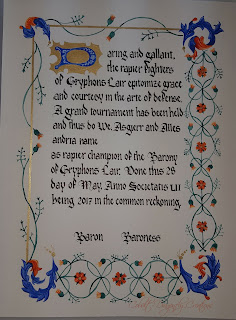 Daring and gallant,
the rapier fighters
of Gryphons Lair epitomize grace
and courtesy in the arte of defense.
A grand tournament has been held
and thus do We, Asgeirr and Alles
andria name
as rapier champion of the Barony
of Gryphons Lair. Done this 28
day of May, Anno Societatis LII
being 2017 in the common reckoning.
Baron Baroness